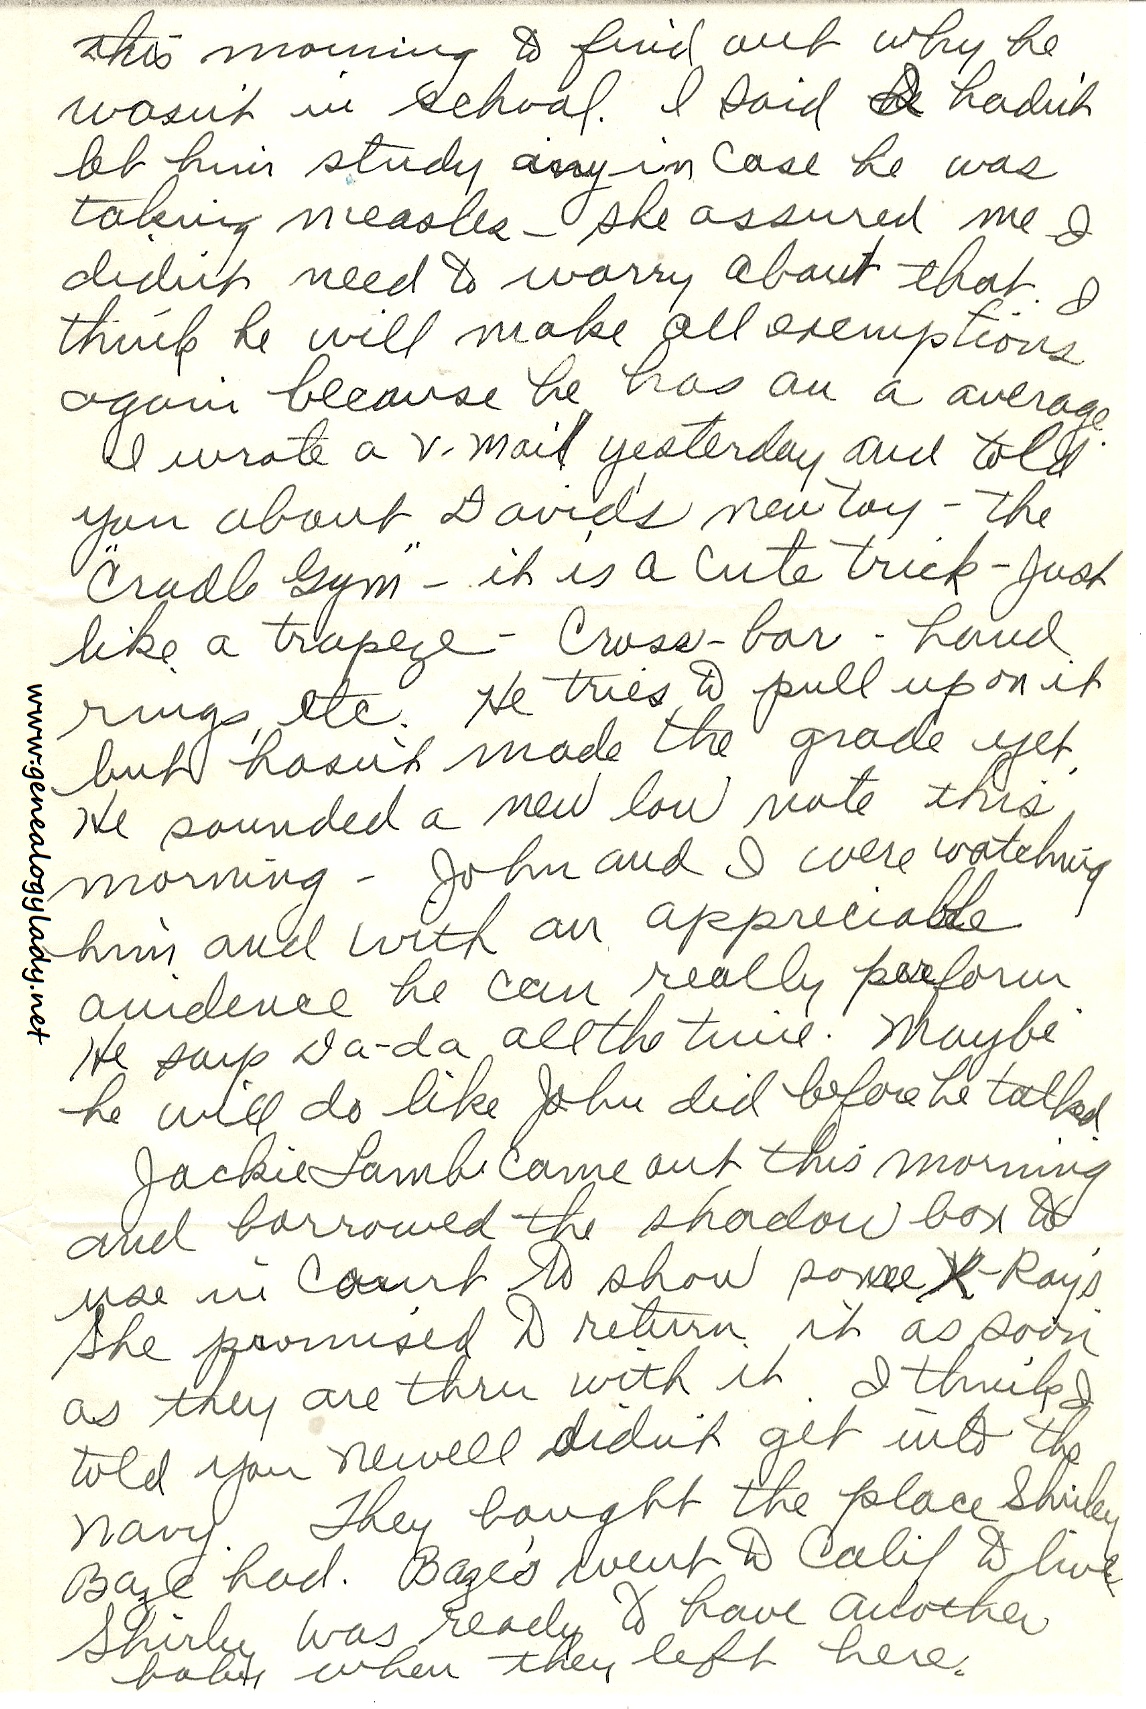 this morning to find out why he
wasn't in school. I said I hadn't
let him study any in case he was
taking measles – she assured me I
didn't need to worry about that. I
think he will make all exemptions
again because he has an a average.
I wrote a V-mail yesterday and told
you about David's new toy – the
"Cradle Gym" – it is a cute trick – Just
like a trapeze – Cross-bar – hand
rings, etc. He tries to pull up on it
but hasn't made the grade yet.
He sounded a new low note this
morning – John and I were watching
him and with an appreciable
audience he can really perform
He says Da-da all the time. Maybe
he will do like John did before he talked.
Jackie Lamb came out this morning
and borrowed the shadow box to
use in Court to show some X-Rays
She promised to return it as soon
as they are thru with it. I think I
told you Newell didn't get into the
Navy. They bought the place Shirley
Baze had. Baze's went to Calif to live
Shirley was ready to have another
baby when they left here.
www.genealogylady.net